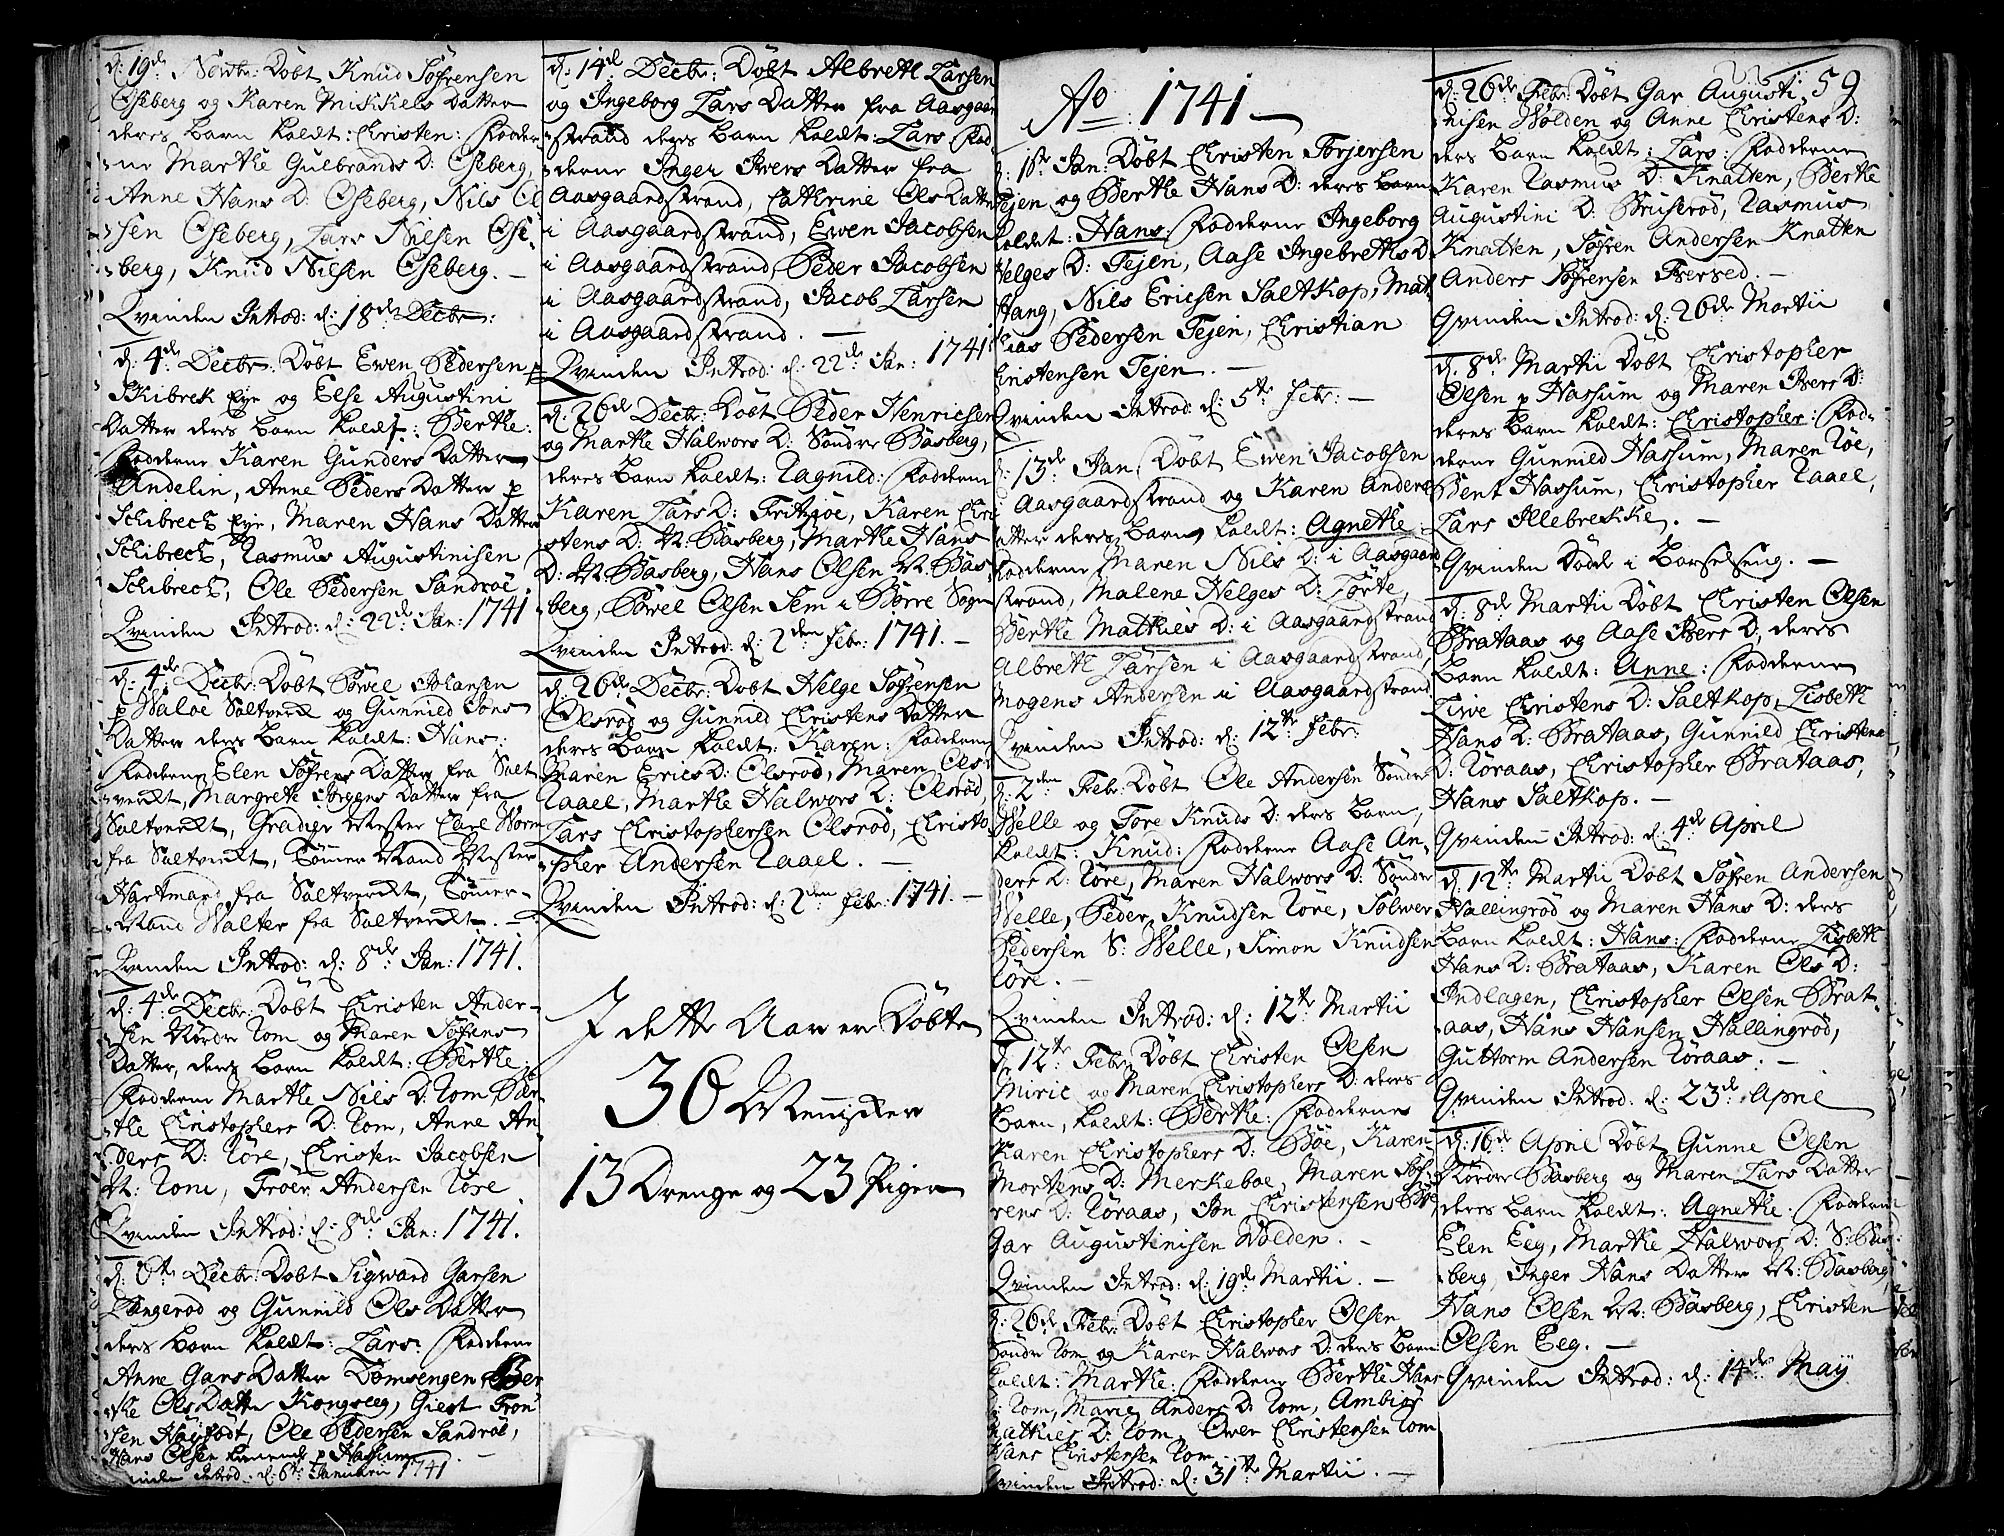 d: 19de Novbr: Döbt Knud Söfrensen
Oseberg og Karen Mikkels Datter
deres Barn kaldt: Christen: Fadder
ne Marthe Gulbrands D: Oseberg,
Anne Hans D: Oseberg, Nils Ol
sen Oseberg, Lars Nilsen Ose-
berg, Knud Nilsen Oseberg. –
Qvinden Introd: d: 18de Decbr:
d: 4de Decbr: Döbt Ewen Pedersen p
Skibrek Eje og Else Augustini
Datter deres Barn kaldt: Berthe:
Fadderne Karen Gunders Datter
Andelin, Anne Peders Datter p
Schibrech Eje, Maren Hans Datter
Schibrech, Rasmus Augustinisen
Schibrech, Ole Pedersen Sandröe.
Qvinden Introd: d: 22de Jan: 1741
d: 4de Decbr: Döbt Pöwel Johansen
p Waloe Saltverck og Gunnild Jons
Datter deres Barn kaldt: Hans:
Fadderne Elen Söfrens Datter fra Salt
verckt, Margrethe Jörgens Datter fra
Saltverckt, Gradeer Mester Carl Worm
fra Saltverckt, Tömmer Mand Mester
Hartmand fra Saltverckt, Tömmer-
Mand Walter fra Saltverckt. –
Qvinden Introd: d: 8de Jan: 1741.
d: 4de Decbr: Döbt Christen Ander-
sen Nordre Rom og Maren Söfrens
Datter, deres Barn kaldt: Berthe:
Fadderne Marthe Nils D: Rom, Ber
the Christophers D: Rom, Anne An
ders D: Röre, Christen Jacobsen
N: Rom, Troer Andersen Röre.
Qvinden Introd: d: 8de Jan: 1741.
d: 6te Decbr: Döbt Sigward Garsen
Langeröd og Gunnild Ols Datter
deres Barn kaldt: Lars: Fadderne
Anne Gars Datter Domsengen, Ber
the Ols Datter Kongseeg, Giest Trön
sen Höyfödt, Ole Pedersen Sandröe,
Hans Olsen p Hassum. –
Qvinden Introd: d: 6te Januarii 1741
d: 14de Decbr: Döbt Albreth Larsen
og Ingeborg Lars Datter fra Aasgaar
strand deres Barn kaldt: Lars Fad-
derne Inger Ivers Datter fra
Aasgaardstrand, Cathrine Ols Datter
i Aasgaardstrand, Ewen Jacobsen
i Aasgaardstrand, Peder Jacobsen
i Aasgaardstrand, Jacob Larsen
i Aasgaardstrand. –
Qvinden Introd: d: 22de Jan: 1741
d: 26de Decbr: Döbt Peder Henricsen
og Marthe Halwors D: Söndre Basberg,
deres Barn kaldt: Ragnild: Fadderne
Karen Lars D: Frithjöe, Karen Chri
stens D: N: Basberg, Marthe Hans
D: N: Basberg, Hans Olsen N: Bas
berg, Pöwel Olsen Sem i Borre Sogn
Qvinden Introd: d: 2den Febr: 1741. –
d: 26de Decbr: Döbt Helge Söfrensen
Olsröd og Gunnild Christens Datter
deres Barn kaldt: Karen: Fadderne
Maren Erics D: Olsröd, Maren Ols D
Raael, Marthe Halwors D: Olsröd,
Lars Christophersen Olsröd, Christo
pher Andersen Raael. –
Qvinden Introd: d: 2den Febr: 1741. –
I dette Aar er Döbte
36 Mennisker
13 Drenge og 23 Piger
Ao: 1741
d: 1ste Jan: Döbt Christen Torjersen
Tejen og Berthe Hans D: deres Barn
kaldet: Hans: Fadderne Ingeborg
Helges D: Tejen, Aase Ingebreths D
Hang, Nils Ericsen Saltkop, Mat
hias Pedersen Tejen, Christian
Christensen Tejen. –
Qvinden Introd: d: 5te Febr: –
d: 13de Jan: Döbt Ewen Jacobsen
i Aasgaardstrand og Karen Anders
Datter deres Barn kaldt: Agnethe:
Fadderne Maren Nils D: i Aasgaard
strand, Malene Helges D: Törte,
Berthe Mathies D: i Aasgaardstrand
Albreth Larsen i Aasgaardstrand,
Mogens Andersen i Aasgaardstrand
Qvinden Introd: d: 12te Febr:
d: 2den Febr: Döbt Ole Andersen Söndre
Welle og Tore Knuds D: deres Barn,
kaldt: Knud: Fadderne Aase An-
ders D: Röre, Maren Halwors D: Söndre
Welle, Peder Knudsen Röre, Sölwer
Pedersen S: Welle, Simon Knudsen
Röre. –
Qvinden Introd: d: 12te Martii
d: 12te Febr: Döbt Christen Olsen
Miric og Maren Christophers D: deres
Barn, kaldt: Berthe: Fadderne
Karen Christophers D: Böe, Karen
Mortens D: Merkeboe, Maren Söf
rens D: Röraas, Jon Christensen Böe,
Gar Augustinisen Wölden. –
Qvinden Introd: d: 19de Martii. –
d: 26de Febr: Döbt Christopher Olsen
Söndre Rom og Karen Halwors D: deres Barn
kaldt: Marthe: Fadderne Berthe Hans
D: Rom, Marie Anders D: Rom, Ambiör
Mathies D: Rom, Owen Christensen Rom
Hans Christensen Rom.
Qvinden Introd: d: 31te Martii. –
59
d: 26de Febr: Döbt Gar Augusti
nisen Wölden og Anne Christens D:
deres Barn kaldt: Lars: Fadderne
Karen Rasmus D: Knatten, Berthe
Augustini D: Bruseröd, Rasmus
Knatten, Söfren Andersen Knatten
Anders Söfrensen Fversed. –
Qvinden Introd: d: 26de Martii
d: 8de Martii Döbt Christopher
Olsen p Hassum og Maren Ivers D:
deres Barn kaldt: Christopher: Fad-
derne Gunnild Hassum, Maren Röe,
Bent Hassum, Christopher Raael,
Lars Illebrekke. –
Qvinden Döde i Barselseng. –
d: 8de Martii Döbt Christen Olsen
Brataas og Aase Ivers D: deres
Barn kaldt: Anne: Fadderne
Live Christens D: Saltkop, Lisbeth
Hans D: Brataas, Gunnild Christens
D: Röraas, Christopher Brataas,
Hans Saltkop. –
Qvinden Introd: d: 4de April
d: 12te Martii Döbt Söfren Andersen
Hallingröd og Maren Hans D: deres
Barn kaldt: Hans: Fadderne Lisbeth
Hans D: Brataas, Karen Ols D:
Indlagen, Christopher Olsen Brat-
aas, Hans Hansen Hallingröd,
Guttorm Andersen Röraas. –
Qvinden Introd: d: 23de April
d: 16de April Döbt Gunne Olsen
Nordre Basberg og Maren Lars Datter
deres Barn kaldt: Agnethe: Fadderne
Elen Eeg, Marthe Halwors D: S: Bas-
berg, Inger Hans Datter N: Basberg,
Hans Olsen N: Basberg, Christen
Olsen Eeg. –
Qvinden Introd: d: 14de Maij